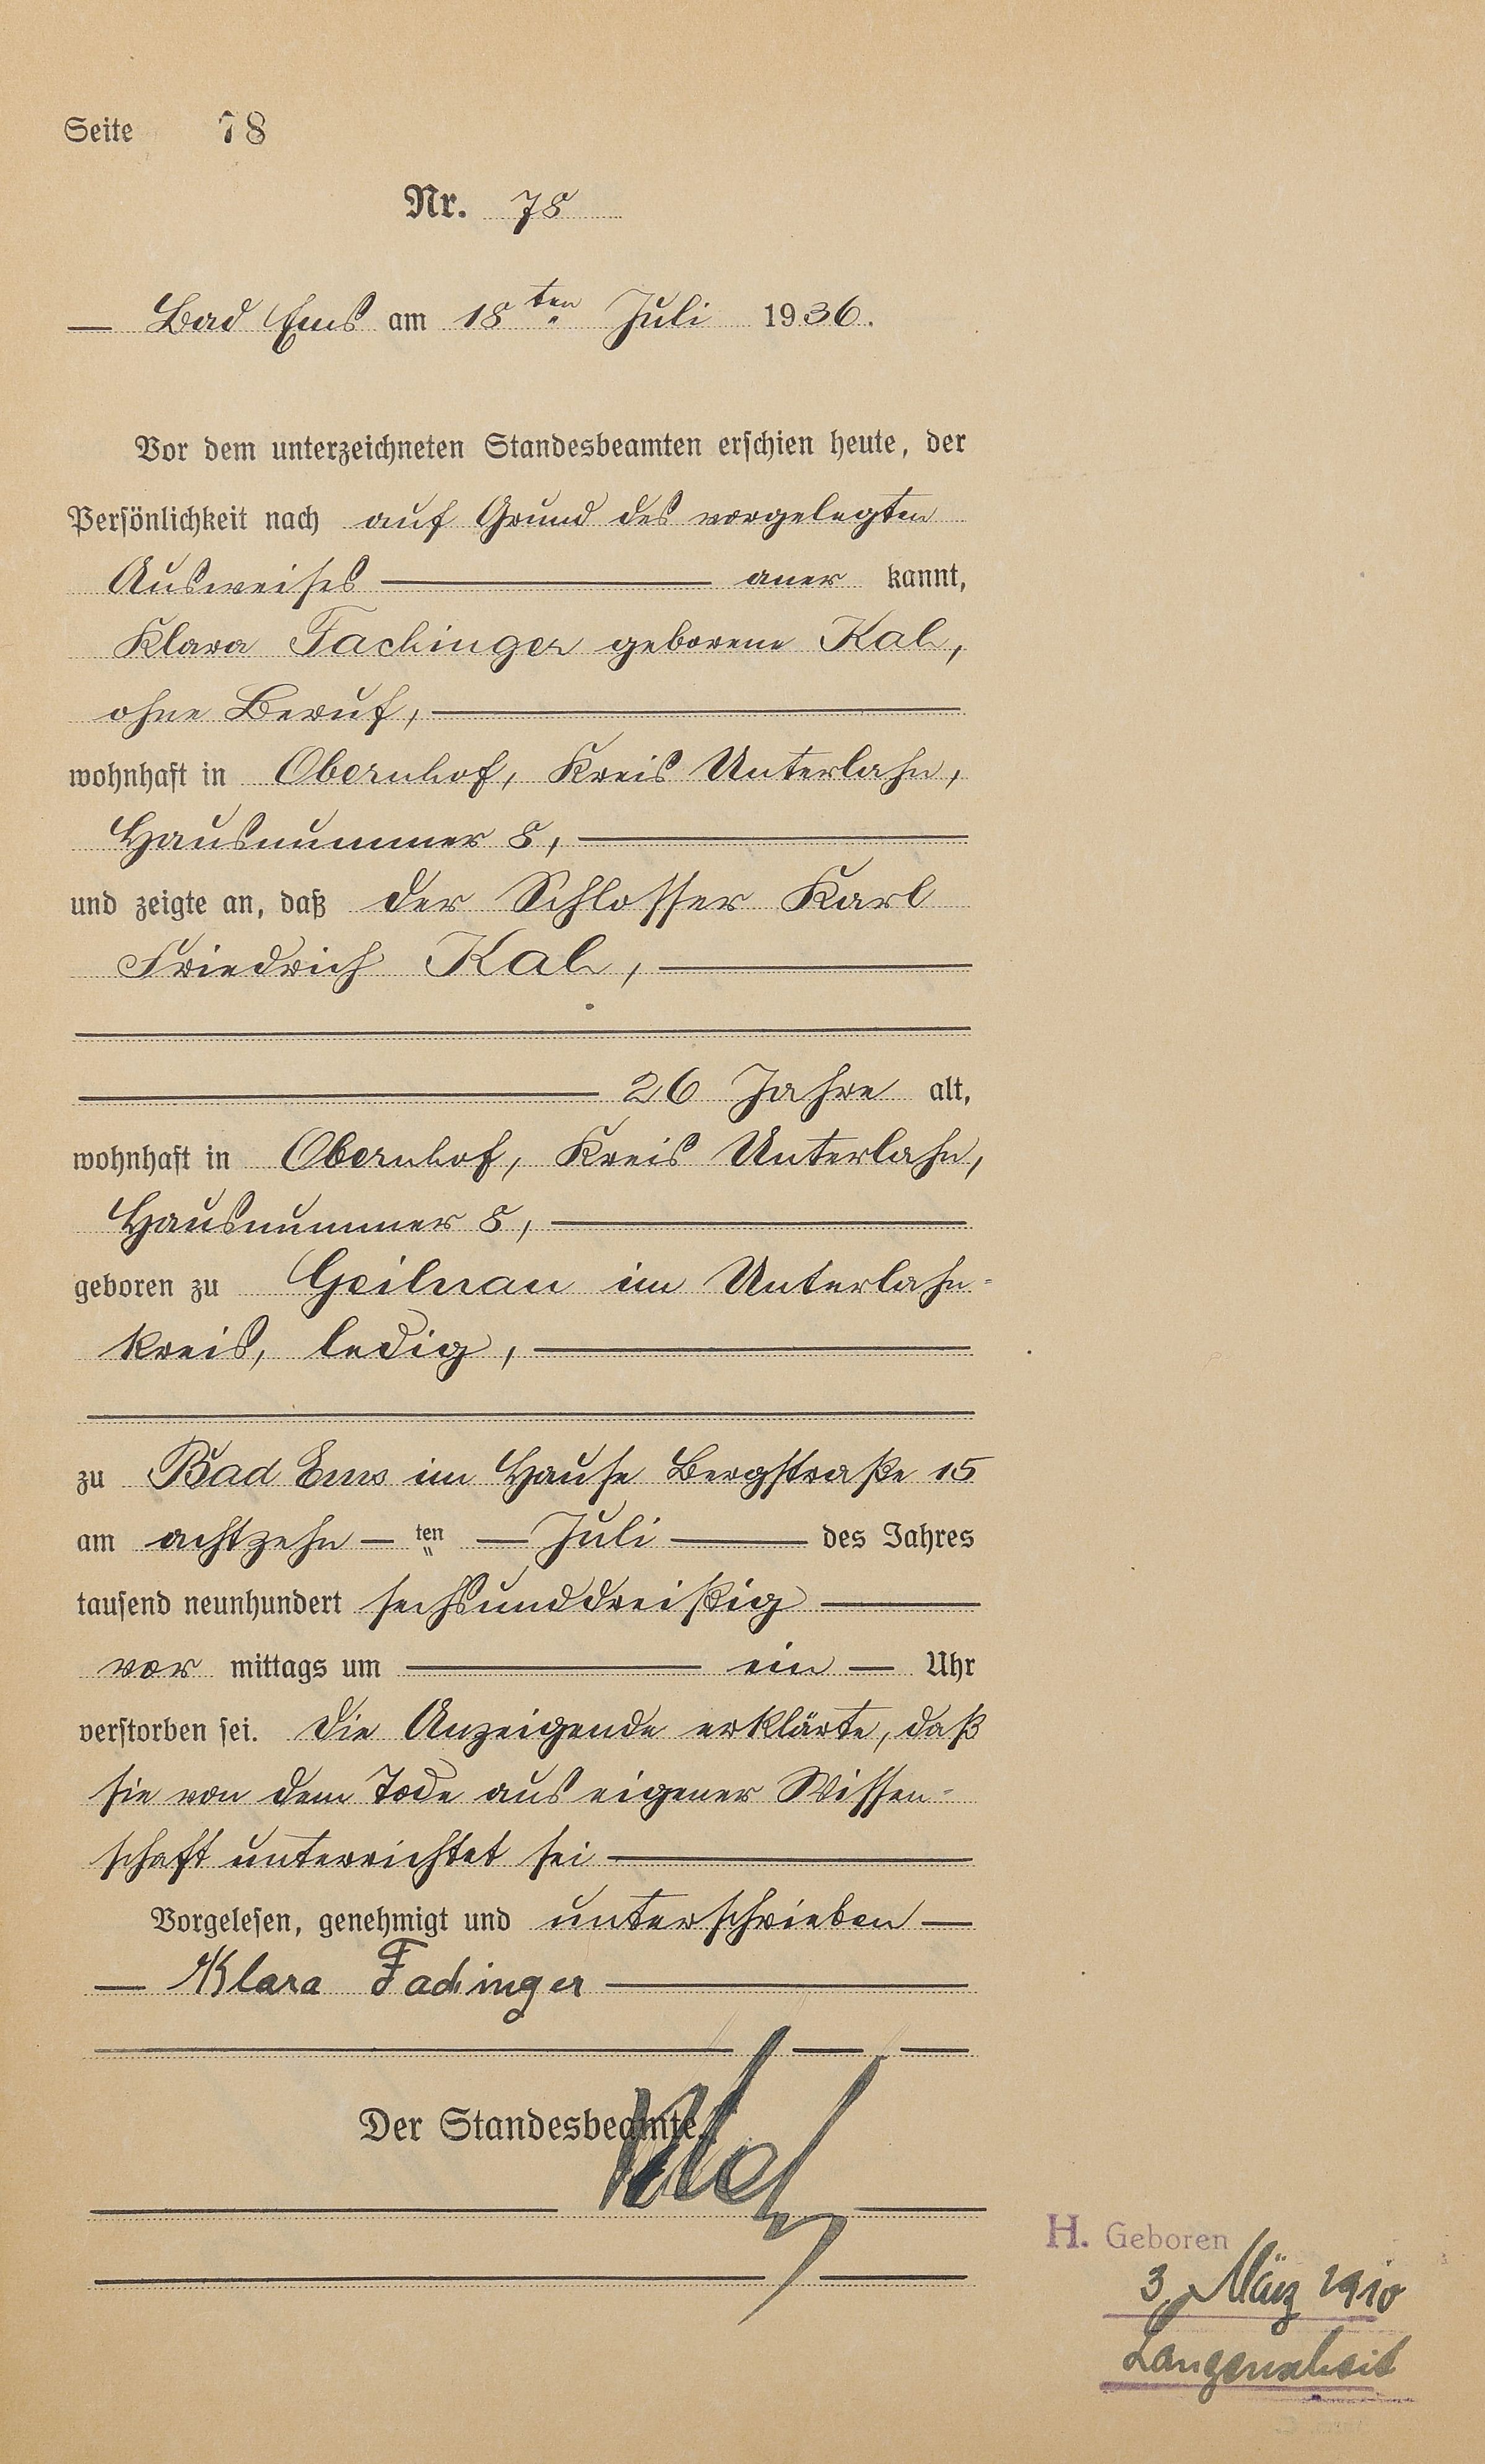 Seite 78
Nr. 78
Bad Ems am 18ten Juli 1936.
Vor dem unterzeichneten Standesbeamten erschien heute, der
Persönlichkeit nach auf Grund des vorgelegten
Ausweises — aner kannt,
Klara Fachinger geborene Kah,
ohne Beruf, —
wohnhaft in Obernhof, Kreis Unterlahn,
Hausnummer 8, —
und zeigte an, daß der Schlosser Karl
Friedrich Kah, —
— 26 Jahre alt,
wohnhaft in Obernhof, Kreis Unterlahn,
Hausnummer 8, —
geboren zu Geilnau im Unterlahn-
kreis, ledig, —
zu Bad Ems im Hause Bergstraße 15
am achtzehn — ten — Juli — des Jahres
tausend neunhundert sechsunddreißig —
vor mittags um — ein — Uhr
verstorben sei. Die Anzeigende erklärte, daß
sie von dem Tode aus eigener Wissen-
schaft unterrichtet sei —
Vorgelesen, genehmigt und unterschrieben —
— Klara Fachinger —
Der Standesbeamte.
H. Geboren
3. März 1910